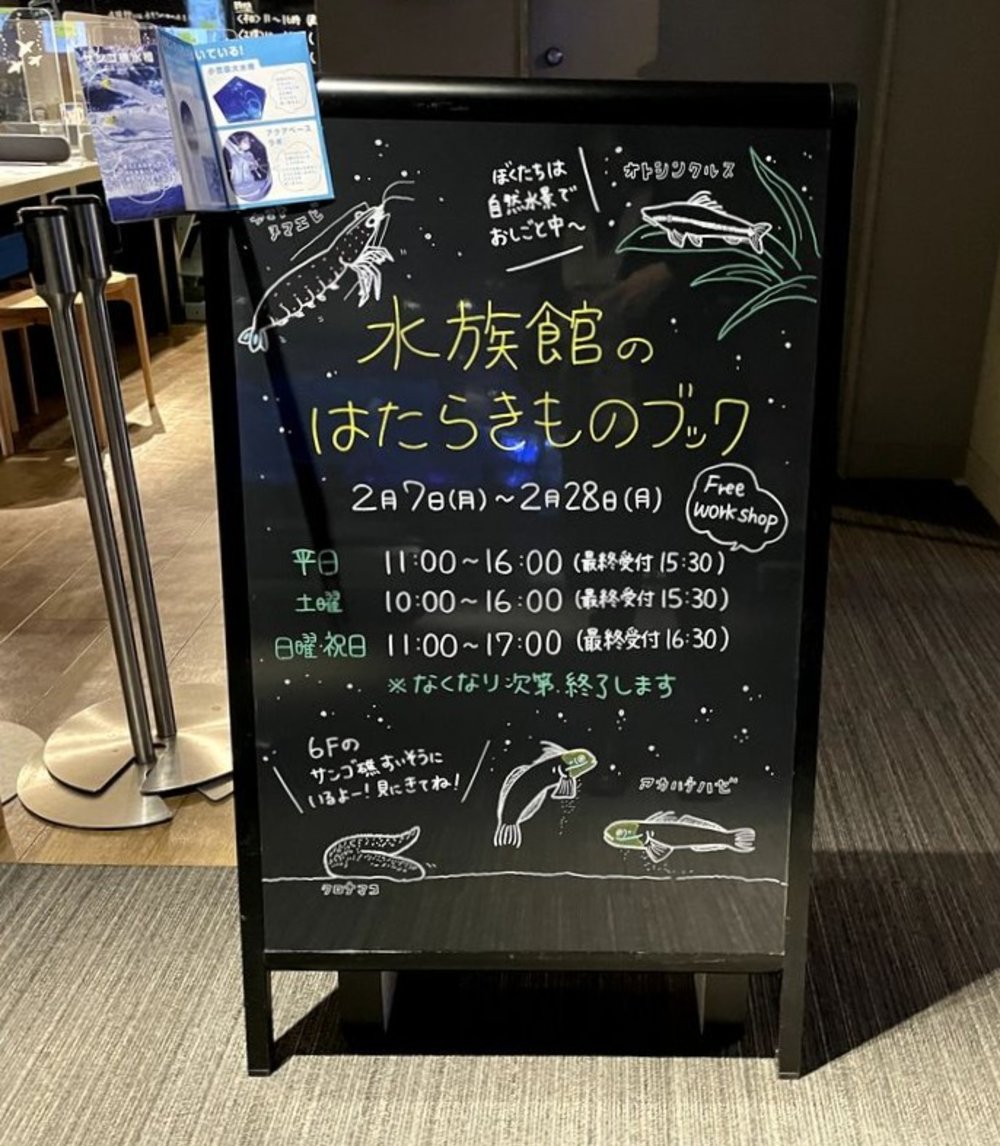 サンゴ礁水槽
いている!
アクアベース
ヌマエビ
ぼくたちは
自然水景で
おしごと中~
オトシンクルス
水族館の
はたらきものブック
2月7日(月)~2月28日(月)
Free
workshop
平日 11:00~16:00 (最終受付 15:30)
土曜 10:00~16:00 (最終受付 15:30)
日曜・祝日 11:00~17:00 (最終受付 16:30)
※なくなり次第、終了します
6Fの
サンゴ礁すいそうに
いるよー!見にきてね!
アカハチハゼ
クロナマコ